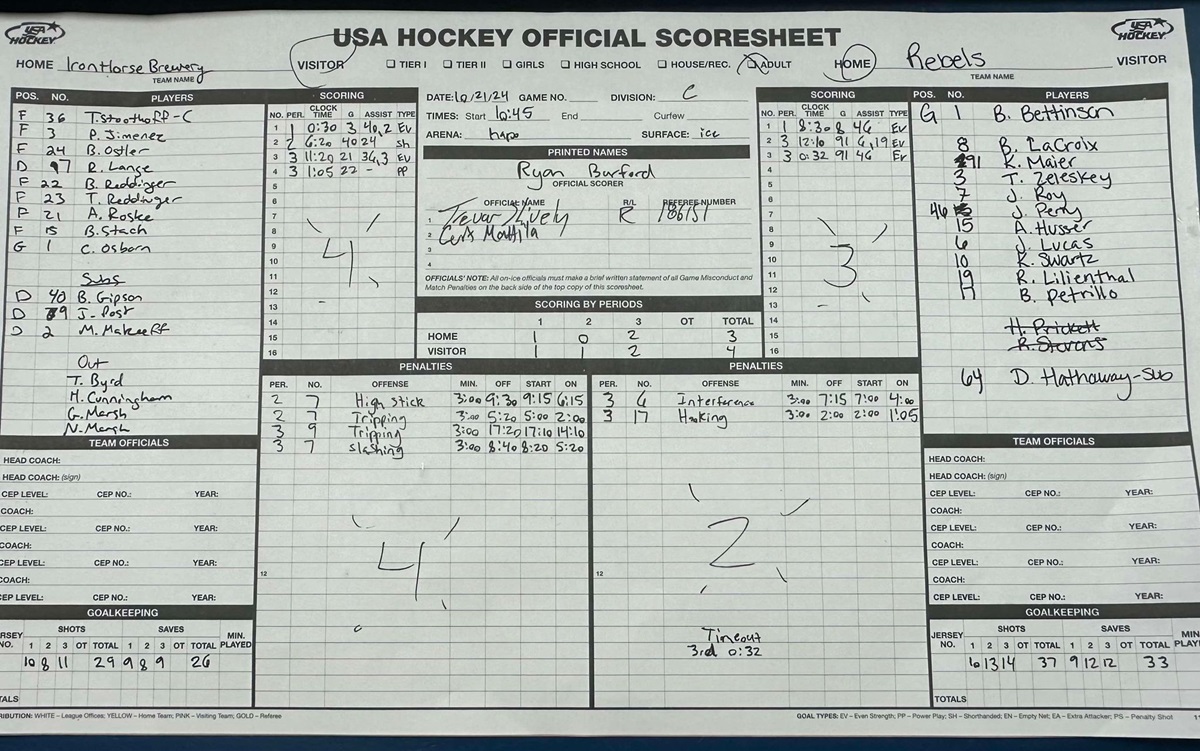 USA HOCKEY
USA HOCKEY OFFICIAL SCORESHEET
USA HOCKEY
HOME IronHorse Brewery VISITOR TIER I TIER II GIRLS HIGH SCHOOL HOUSE/REC. ADULT HOME Rebels VISITOR
TEAM NAME TEAM NAME
POS. NO. PLAYERS
F 36 T. Stoothoff-C
F 3 P. Jimenez
F 24 B. Ostler
D 97 R. Lange
F 22 B. Reddinger
F 23 T. Reddinger
F 21 A. Roske
F 15 B. Stach
G 1 C. Osborn
Subs
D 40 B. Gipson
D 9 J. Post
D 2 M. Makeeff
Out
T. Byrd
H. Cunningham
G. Marsh
N. Marsh
TEAM OFFICIALS
HEAD COACH:
HEAD COACH: (sign)
CEP LEVEL: CEP NO.: YEAR:
COACH:
CEP LEVEL: CEP NO.: YEAR:
COACH:
CEP LEVEL: CEP NO.: YEAR:
COACH:
CEP LEVEL: CEP NO.: YEAR:
GOALKEEPING
SHOTS SAVES MIN.
JERSEY NO. 1 2 3 OT TOTAL 1 2 3 OT TOTAL PLAYED
10 8 11 29 9 8 9 26
TOTALS
SCORING
NO. PER. CLOCK TIME G ASSIST TYPE
1 1 0:30 3 40,2 Ev
2 2 6:20 40 24 sh
3 3 11:20 21 36,3 EV
4 3 1:05 22 - PP
5
6
7
8
9
10
11
12
13
14
15
16
4
DATE: 10/21/24 GAME NO. DIVISION: C
TIMES: Start 10:45 End Curfew
ARENA: hape SURFACE: ice
PRINTED NAMES
Ryan Burford
OFFICIAL SCORER
OFFICIAL NAME R/L REFEREE NUMBER
1 Trevor Lively R 186151
2 Curt Mattila
3
4
OFFICIALS' NOTE: All on-ice officials must make a brief written statement of all Game Misconduct and
Match Penalties on the back side of the top copy of this scoresheet.
SCORING BY PERIODS
1 2 3 OT TOTAL
HOME 1 0 2 3
VISITOR 1 1 2 4
SCORING
NO. PER. CLOCK TIME G ASSIST TYPE
1 1 8:30 8 46 Ev
2 3 12:10 91 6,19 EV
3 3 0:32 91 46 Ev
4
5
6
7
8
9
10
11
12
13
14
15
16
3
POS. NO. PLAYERS
G 1 B. Bettinson
8 B. LaCroix
91 K. Maier
3 T. Zeleskey
7 J. Roy
46 J. Perry
15 A. Husser
6 J. Lucas
10 K. Swartz
19 R. Lilienthal
17 B. Petrillo
H. Prickett
R. Stevens
64 D. Hathaway-Sub
PENALTIES
PER. NO. OFFENSE MIN. OFF START ON
2 7 High Stick 3:00 9:30 9:15 6:15
2 7 Tripping 3:00 5:20 5:00 2:00
3 9 Tripping 3:00 17:20 17:10 14:10
3 7 slashing 3:00 8:40 8:20 5:20
4
12
PENALTIES
PER. NO. OFFENSE MIN. OFF START ON
3 6 Interference 3:00 7:15 7:00 4:00
3 17 Hooking 3:00 2:00 2:00 1:05
2
12
Timeout
3rd 0:32
TEAM OFFICIALS
HEAD COACH:
HEAD COACH: (sign)
CEP LEVEL: CEP NO.: YEAR:
COACH:
CEP LEVEL: CEP NO.: YEAR:
COACH:
CEP LEVEL: CEP NO.: YEAR:
COACH:
CEP LEVEL: CEP NO.: YEAR:
GOALKEEPING
JERSEY NO. SHOTS SAVES MIN
1 2 3 OT TOTAL 1 2 3 OT TOTAL PLAYE
10 13 14 37 9 12 12 33
TOTALS
RIBUTION: WHITE – League Offices; YELLOW – Home Team; PINK – Visiting Team; GOLD – Referee
GOAL TYPES: EV – Even Strength; PP – Power Play; SH – Shorthanded; EN – Empty Net; EA – Extra Attacker; PS – Penalty Shot